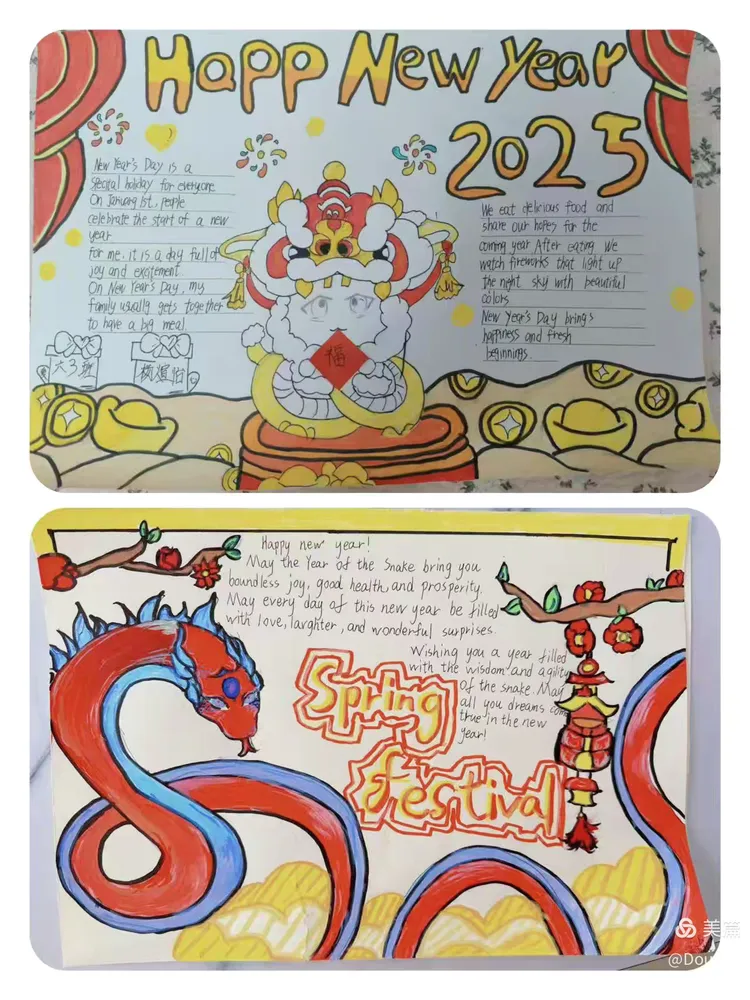 Happ New Year
2025
New Year's Day is a
special holiday for everyone
On January 1st, people
celebrate the start of a new
year
for me, it is a day full of
joy and excitement
On New Year's Day, my
family usually gets together
to have a big meal.
We eat delicious food and
share our hopes for the
coming year After eating We
watch fireworks that light up
the night sky with beautiful
colors
New Year's Day brings
happiness and fresh
beginnings.
福
六3班
Happy new year!
May the Year of the Snake bring you
boundless joy, good health, and prosperity.
May every day of this new year be filled
with love, laughter, and wonderful surprises.
Wishing you a year filled
with the wisdom and agility
of the snake. May
all you dreams com
true in the new
year!
Spring
festival
美篇
@Dou